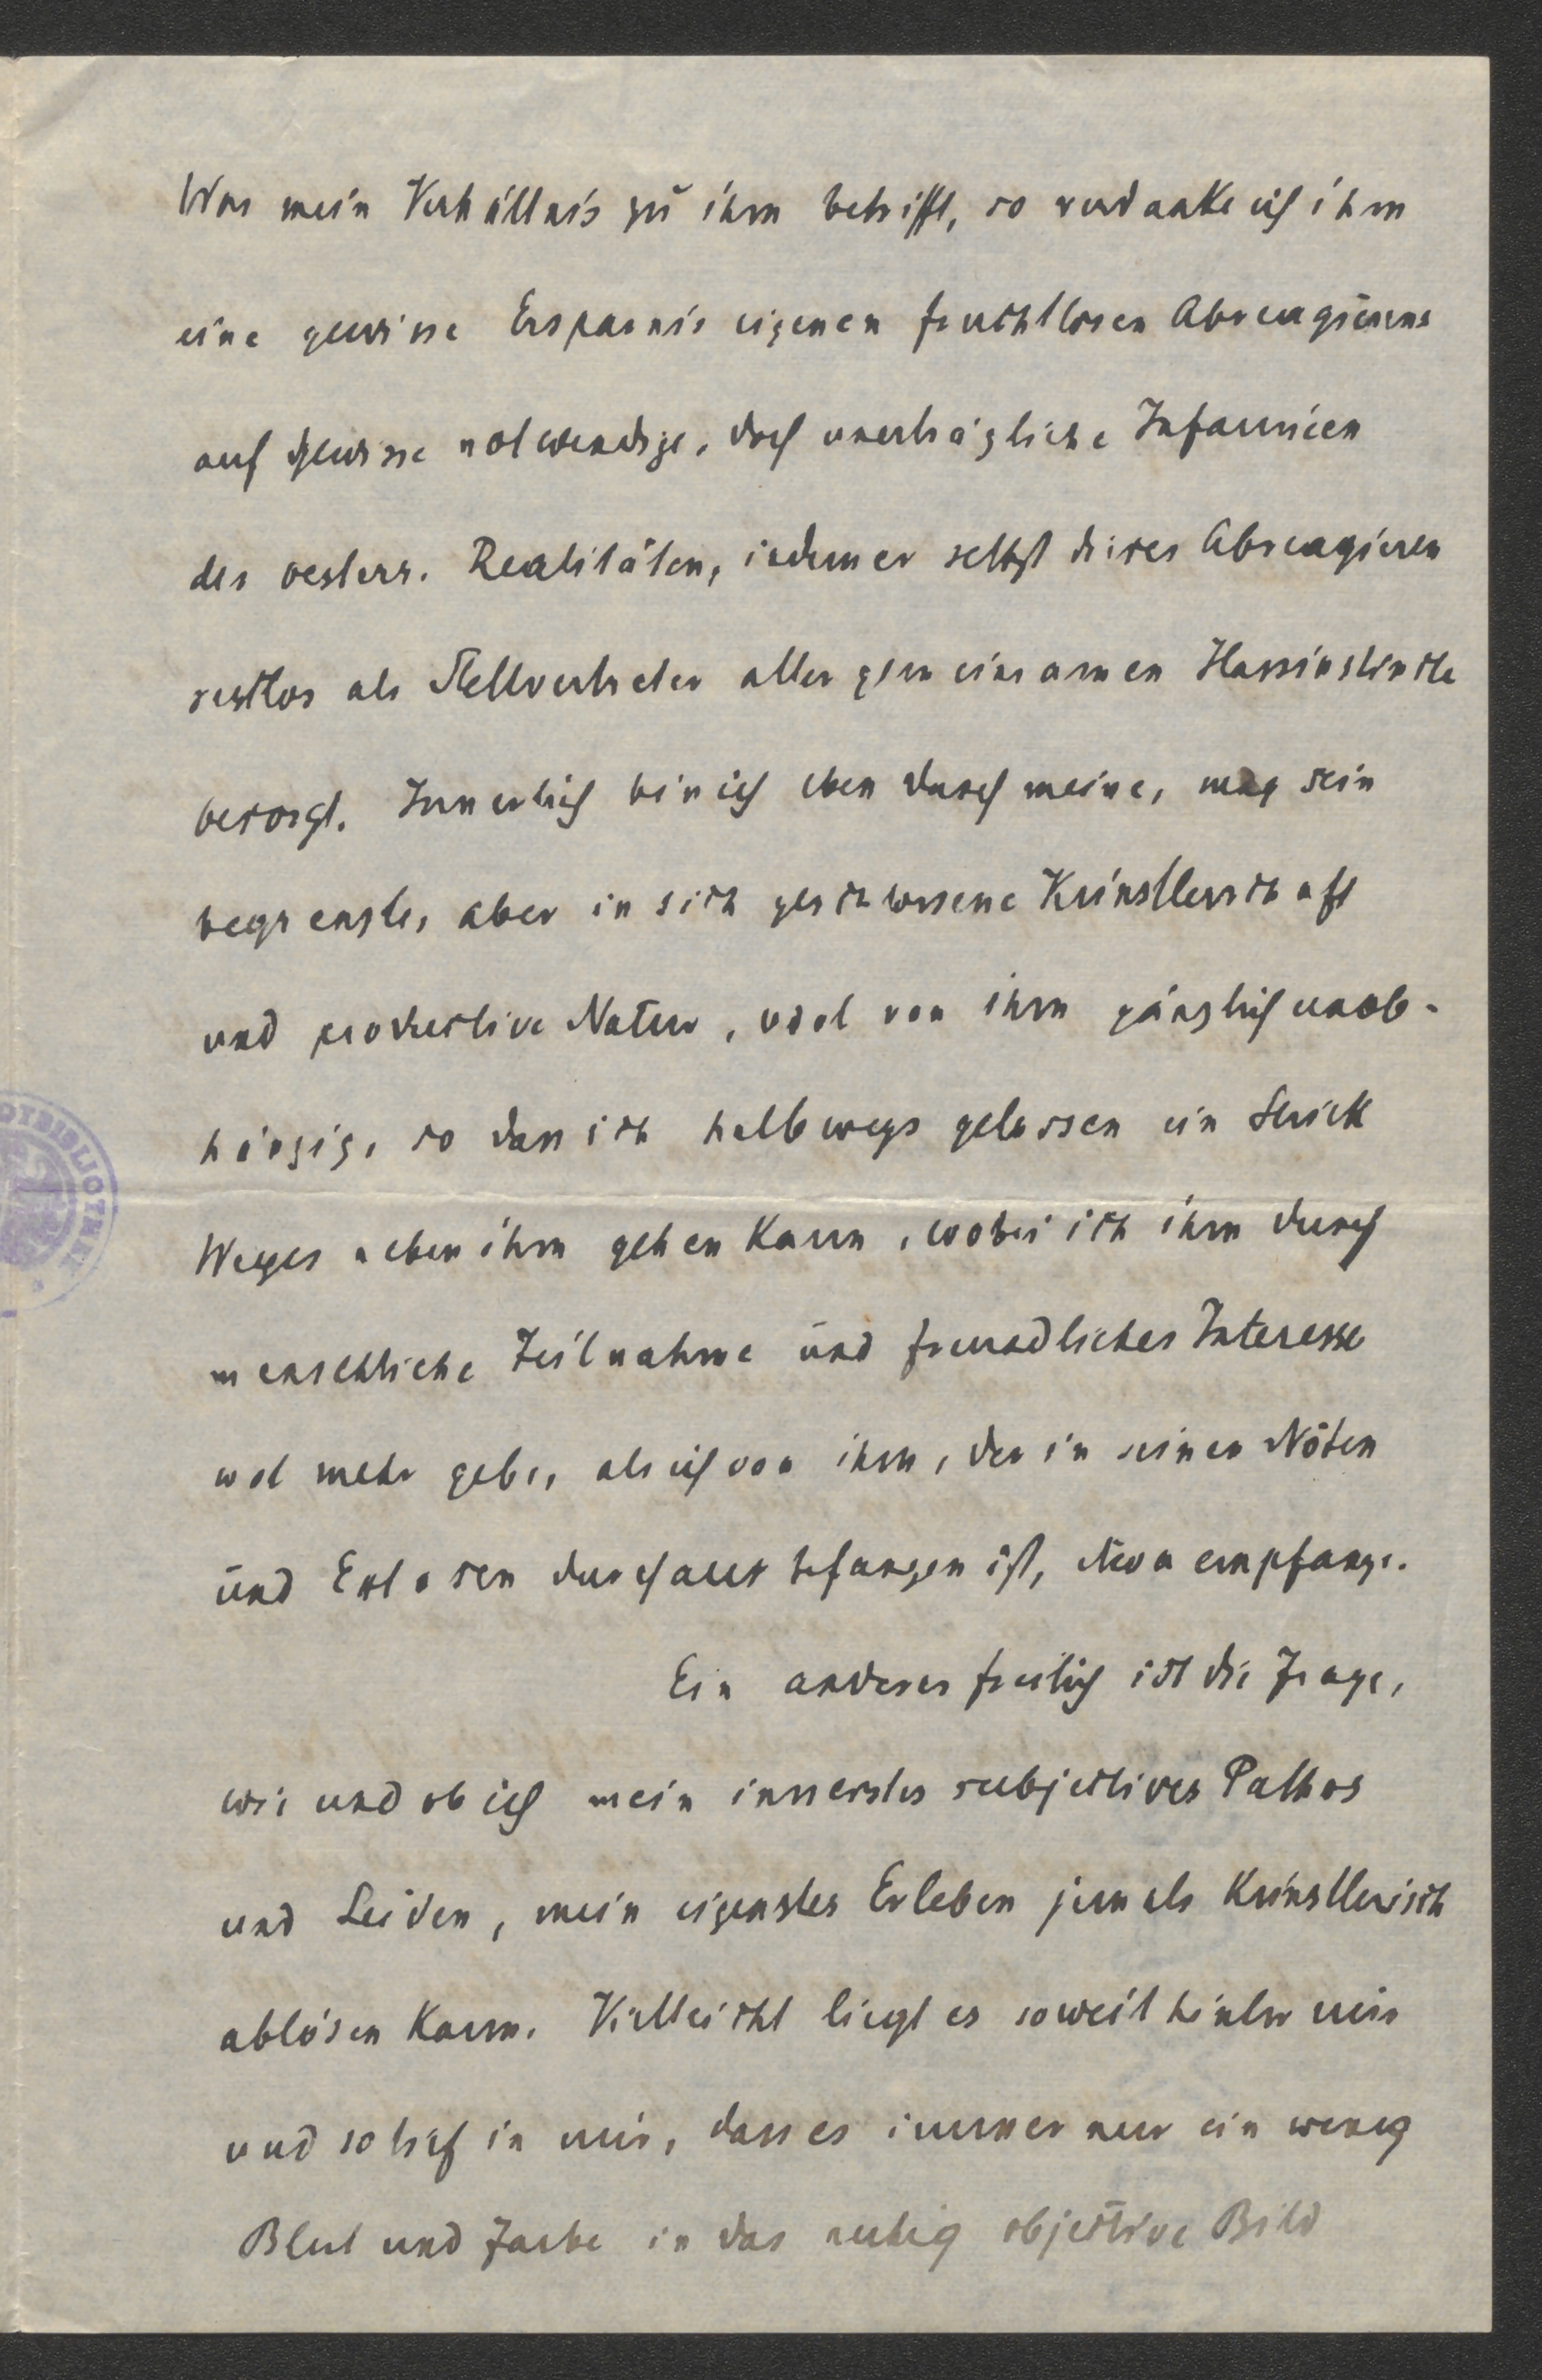 Was mein Verhältnis zu ihm betrifft, so verdanke ich ihm
eine gewisse Ersparnis eigenen fruchtlosen Abreagierens
auf gewisse notwendige, doch unerträgliche Infamien
der oesterr. Realitäten, indem er selbst dieses Abreagieren
restlos als Stellvertreter aller gemeinsamen Hassinstincte
besorgt. Innerlich bin ich eben durch meine, mag sein
begrenzte, aber in sich geschlossene Künstlerschaft
und productive Natur, wol von ihm gänzlich unab-
hängig, so dass ich halbwegs gelassen ein Stück
Weges neben ihm gehen kann, wobei ich ihm durch
menschliche Teilnahme und freundliches Interesse
wol mehr gebe, als ich von ihm, der in seinen Nöten
und durchaus befangen ist, etwa empfange.
Ein anderes freilich ist die Frage,
wie und ob ich mein innerstes subjectives Pathos
und Leiden, mein eigenstes Erleben jemals künstlerisch
ablösen kann. Vielleicht liegt es soweit hinter mir
und so tief in mir, dass es immer nur ein wenig
Blut und Farbe in das ruhig objective Bild
OTBIBLIOTHEK